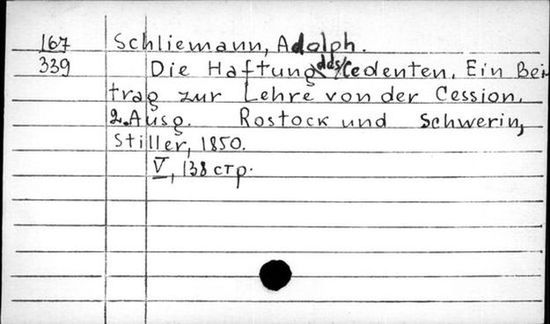 167 Schliemann, Adolph.
339 Die Haftung des Cedenten. Ein Bei-
trag zur Lehre von der Cession.
2. Ausg. Rostock und Schwerin,
Stiller, 1850.
V, 138 стр.